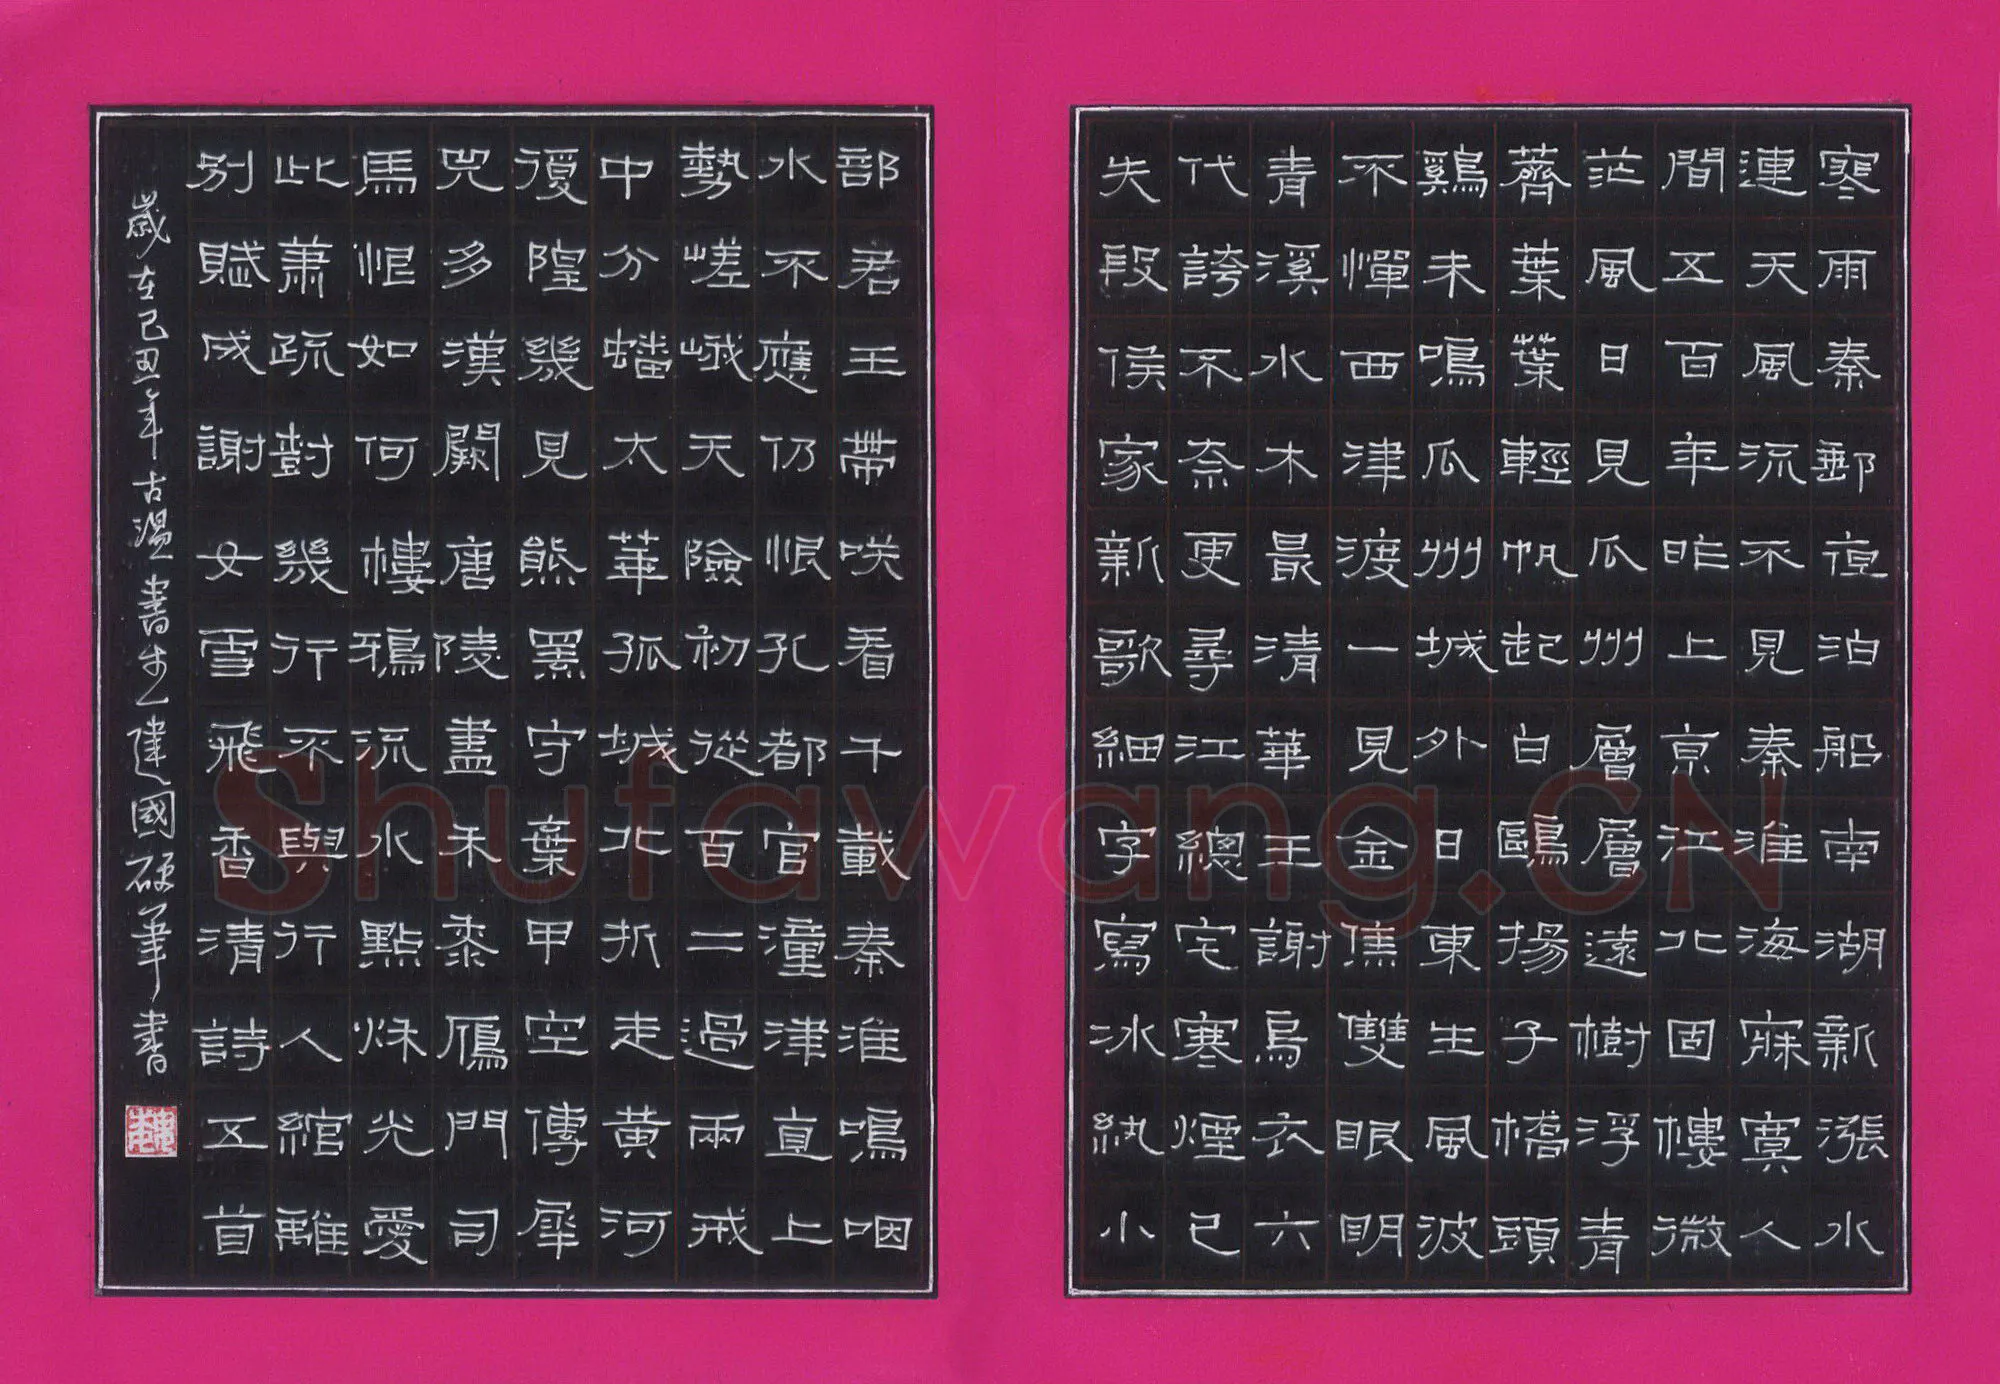 寒雨秦郵夜泊船南湖新漲水
連天風流不見秦淮海寂寞人
間五百年昨上京江北固樓微
茫風日見瓜州層層遠樹浮青
薺葉葉輕帆起白鷗揚子橋頭
鷄未鳴瓜州城外日東生風波
不憚西津渡一見金焦雙眼明
青溪水木最清華王謝烏衣六
代誇不奈更尋江總宅寒煙已
失段侯家新歌細字寫冰紈小
部君王帶咲看千載秦淮鳴咽
水不應仍恨孔都官潼津直上
勢嵯峨天險初從百二過兩戒
中分蟠太華孤城北折走黃河
復隍幾見熊羆守棄甲空傳犀
兕多漢闕唐陵盡禾黍鴈門司
馬恨如何樓鴉流水點秌光愛
此蕭疏對幾行不與行人綰離
別賦成謝女雪飛香清詩五首
歲在己丑年古溫書生建國硬筆書
Shufawang.CN